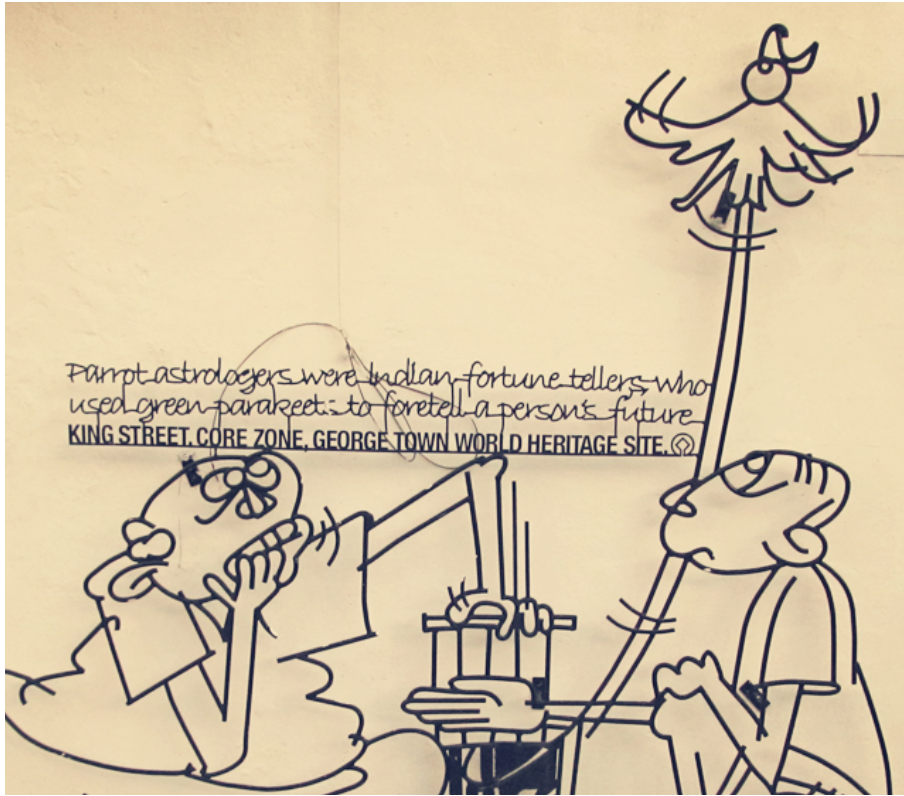 Parrot astrologers were Indian fortune tellers, who
used green parakeets to foretell a person's future
KING STREET. CORE ZONE, GEORGE TOWN WORLD HERITAGE SITE.